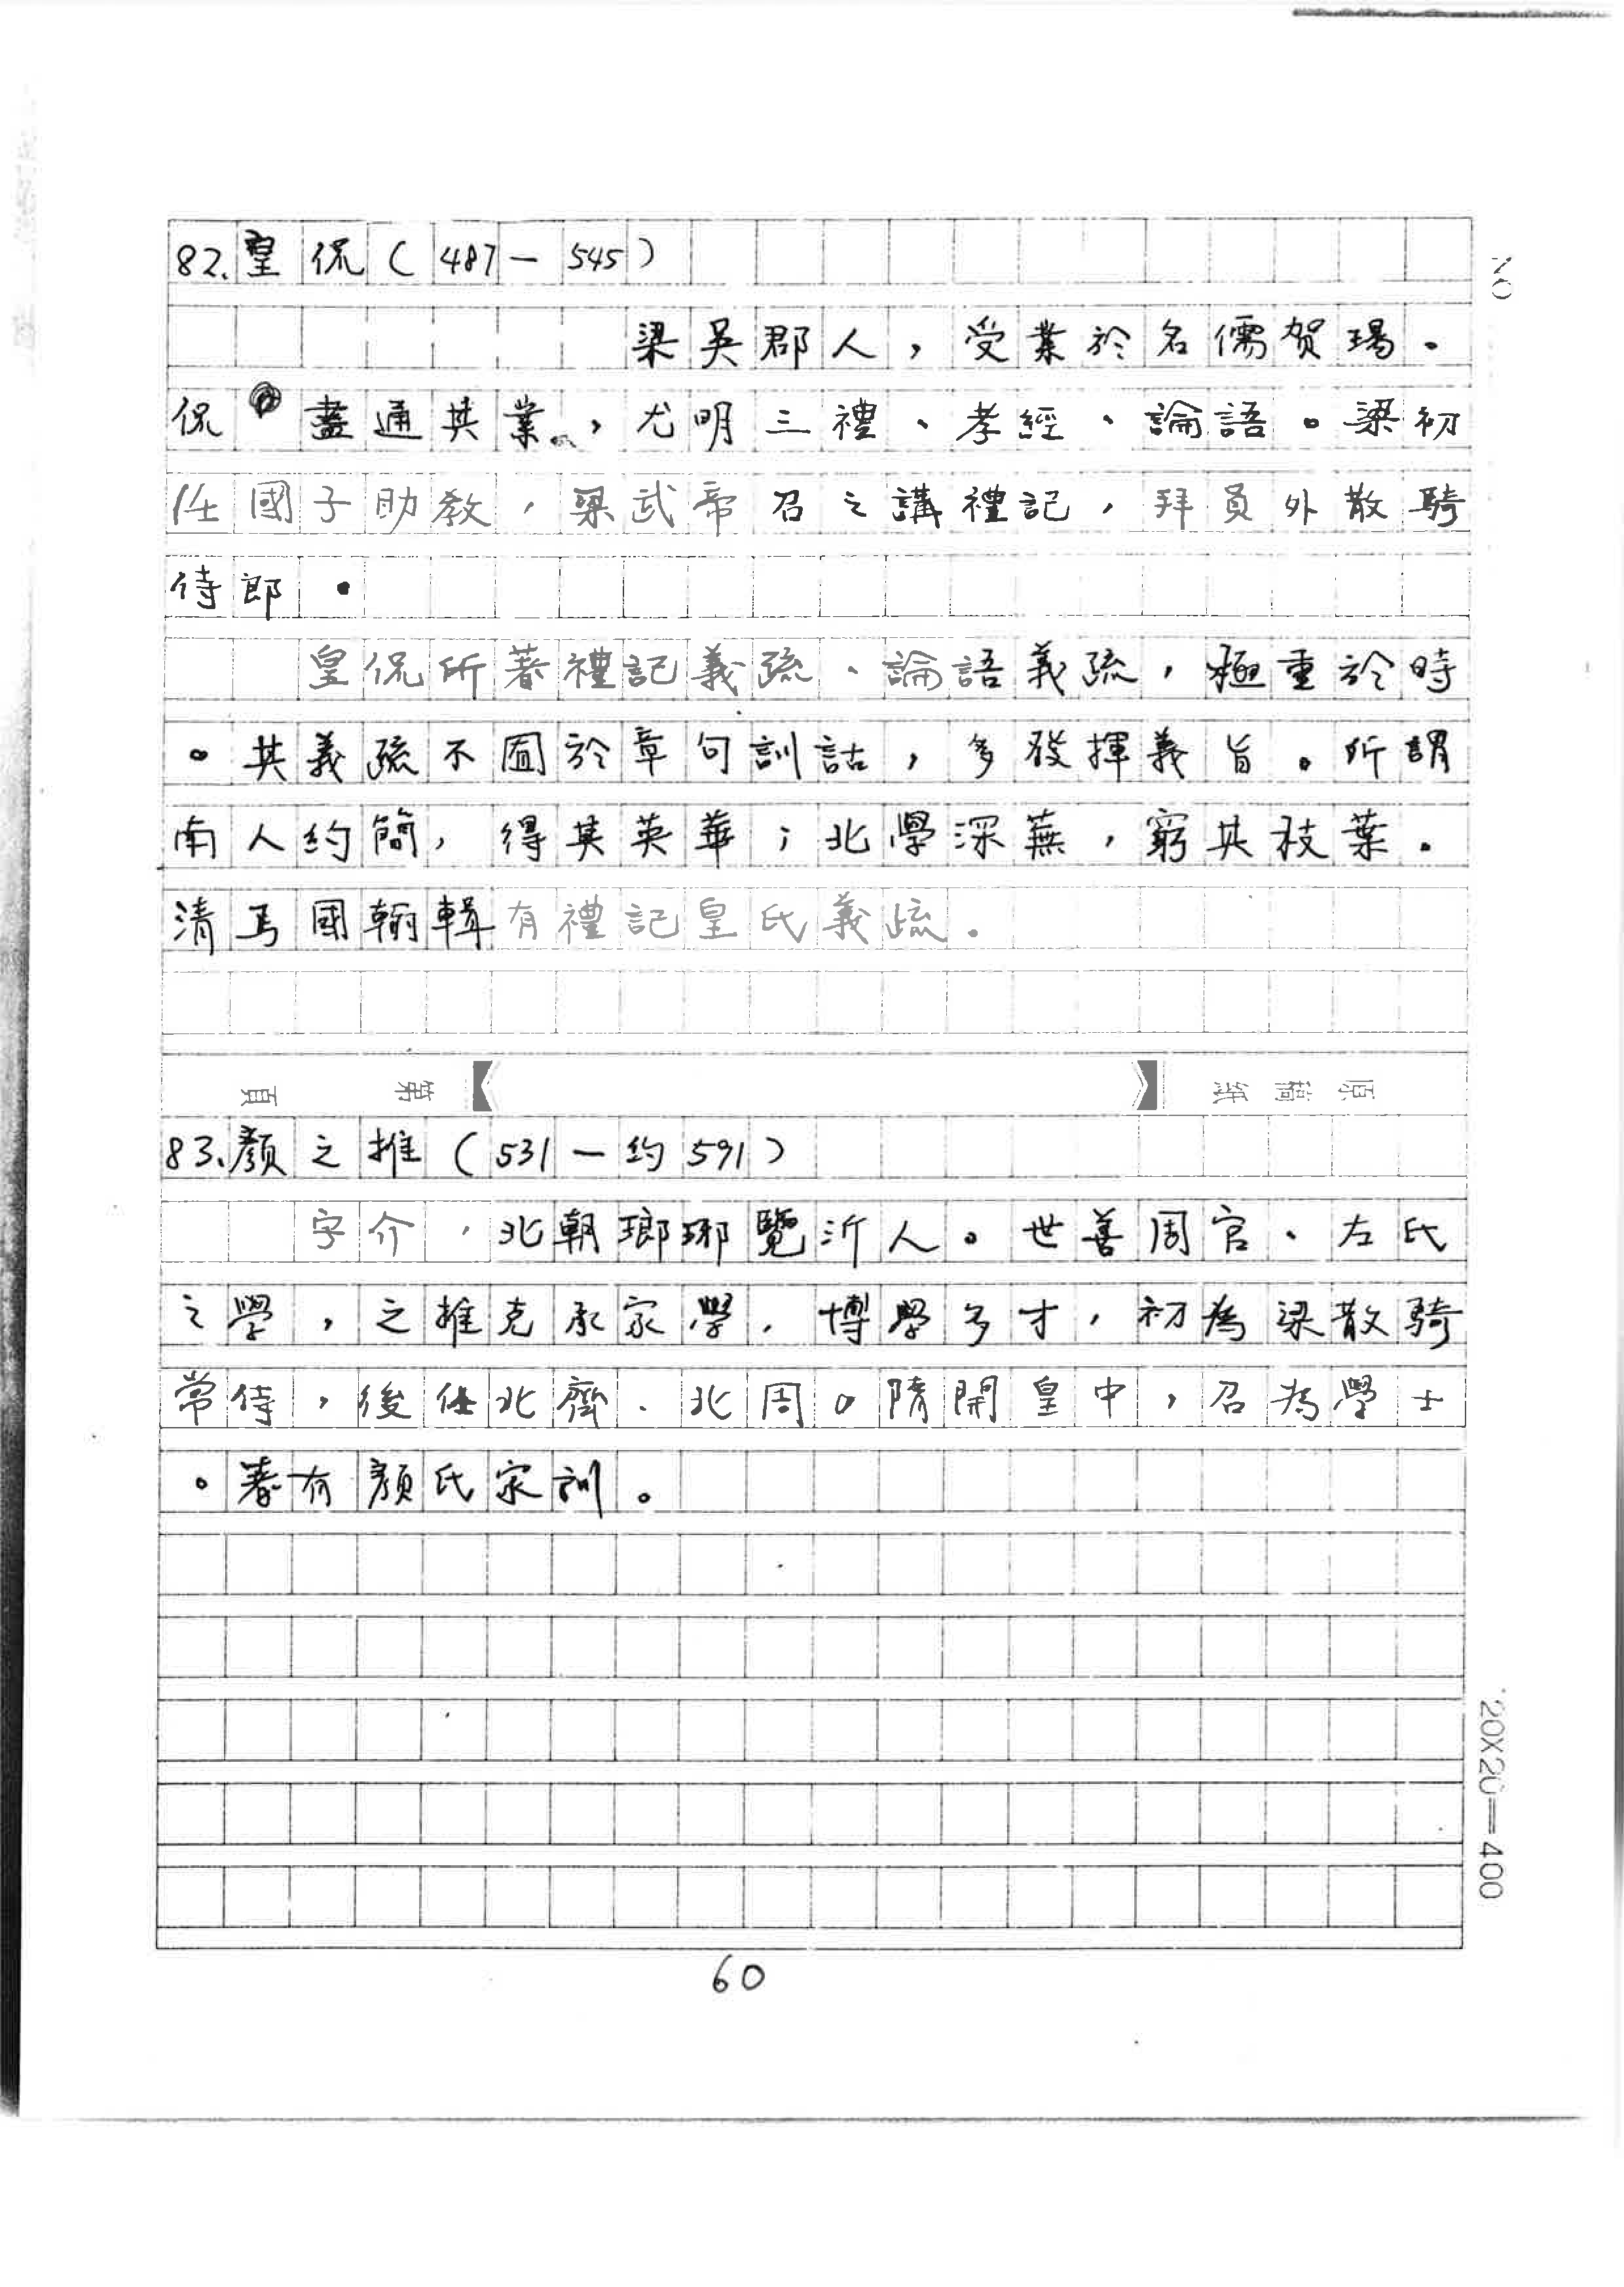 82.皇侃(487-545)
梁吳郡人，受業於名儒賀瑒。
侃盡通其業，尤明三禮、孝經、論語。梁初
任國子助教，梁武帝召之講禮記，拜員外散騎
侍郎。
皇侃所著禮記義疏、論語義疏，極重於時
。其義疏不囿於章句訓詁，多發揮義旨。所謂
南人約簡，得其英華；北學深蕪，窮其枝葉。
清馬國翰輯有禮記皇氏義疏。
頁 第 原稿紙
83.顏之推(531-約591)
字介，北朝瑯琊覽沂人。世善周官、左氏
之學，之推克承家學，博學多才，初為梁散騎
常侍，後仕北齊、北周。隋開皇中，召為學士
。著有顏氏家訓。
20X20=400
60